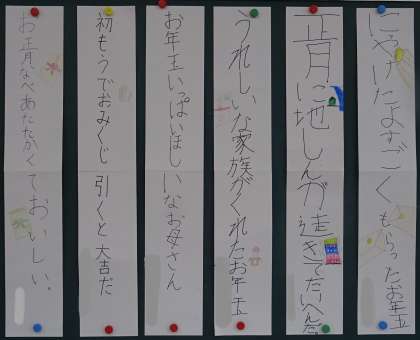 にやけたよすごくもらったお年玉
正月に地しんが起きてたいへんだ
うれしいな家族がくれたお年玉
お年玉いっぱいほしいなお母さん
初もうでおみくじ引くと大吉だ
お正月なべあたたかくておいしい。